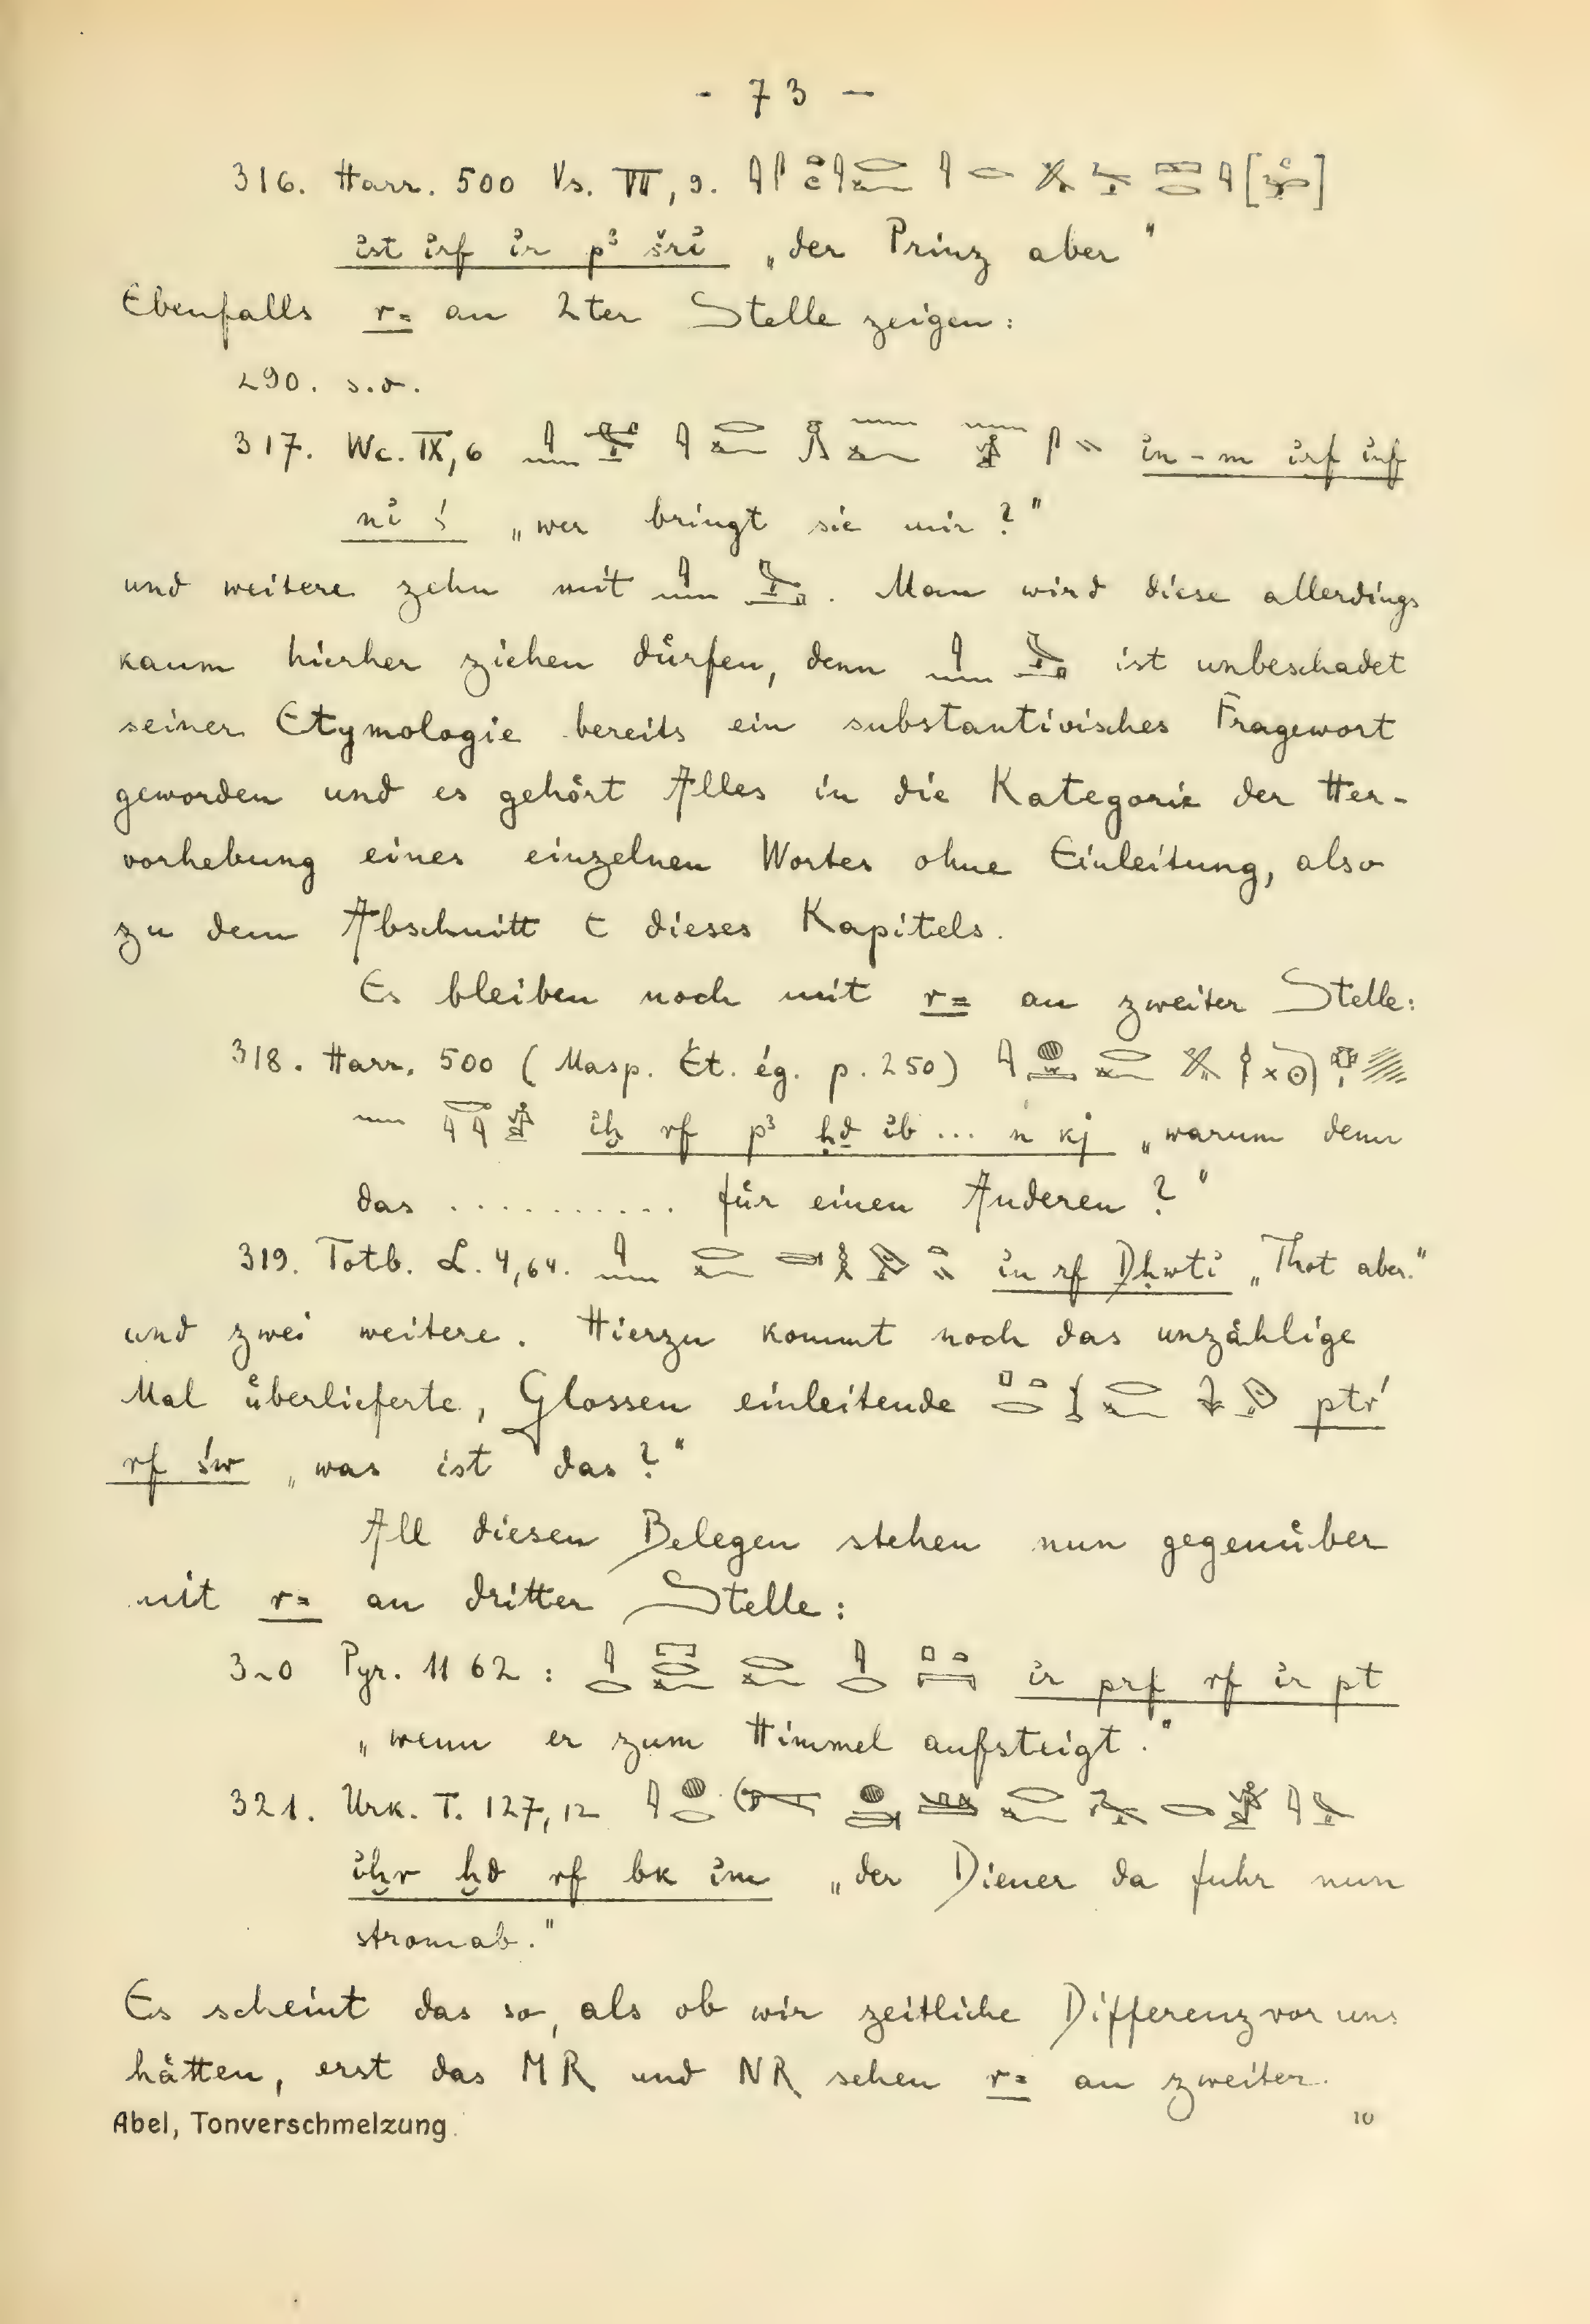 - 73 -
316. Harr. 500 Vs. VII, 9.
ỉst ỉrf ỉr pꜣ šrỉ „der Prinz aber“
Ebenfalls r= an 2ter Stelle zeigen:
290. s.o.
317. Wc. IX, 6 ỉn-m ỉrf ỉnf
nỉ ś „wer bringt sie mir?“
und weitere zehn mit . Man wird diese allerdings
kaum hierher ziehen dürfen, denn ist unbeschadet
seiner Etymologie bereits ein substantivisches Fragewort
geworden und es gehört Alles in die Kategorie der Her-
vorhebung eines einzelnen Wortes ohne Einleitung, also
zu dem Abschnitt C dieses Kapitels.
Es bleiben noch mit r= an zweiter Stelle:
318. Harr. 500 (Masp. Ét. ég. p. 250)
ỉḫ rf pꜣ ḥḏ ỉb ... n kj „warum denn
das .......... für einen Anderen?“
319. Totb. L. 4,64. ỉn rf Ḏḥwtỉ „Thot aber.“
und zwei weitere. Hierzu kommt noch das unzählige
Mal überlieferte, Glossen einleitende ptr
rf św „was ist das?“
All diesen Belegen stehen nun gegenüber
mit r= an dritter Stelle:
320 Pyr. 1162: ỉr prf rf ỉr pt
„wenn er zum Himmel aufsteigt.“
321. Urk. T. 127,12
ỉḫr ḫd rf bk ỉm „der Diener da fuhr nun
stromab.“
Es scheint das so, als ob wir zeitliche Differenz vor uns
hätten, erst das MR und NR sehen r= an zweiter.
Abel, Tonverschmelzung. 10